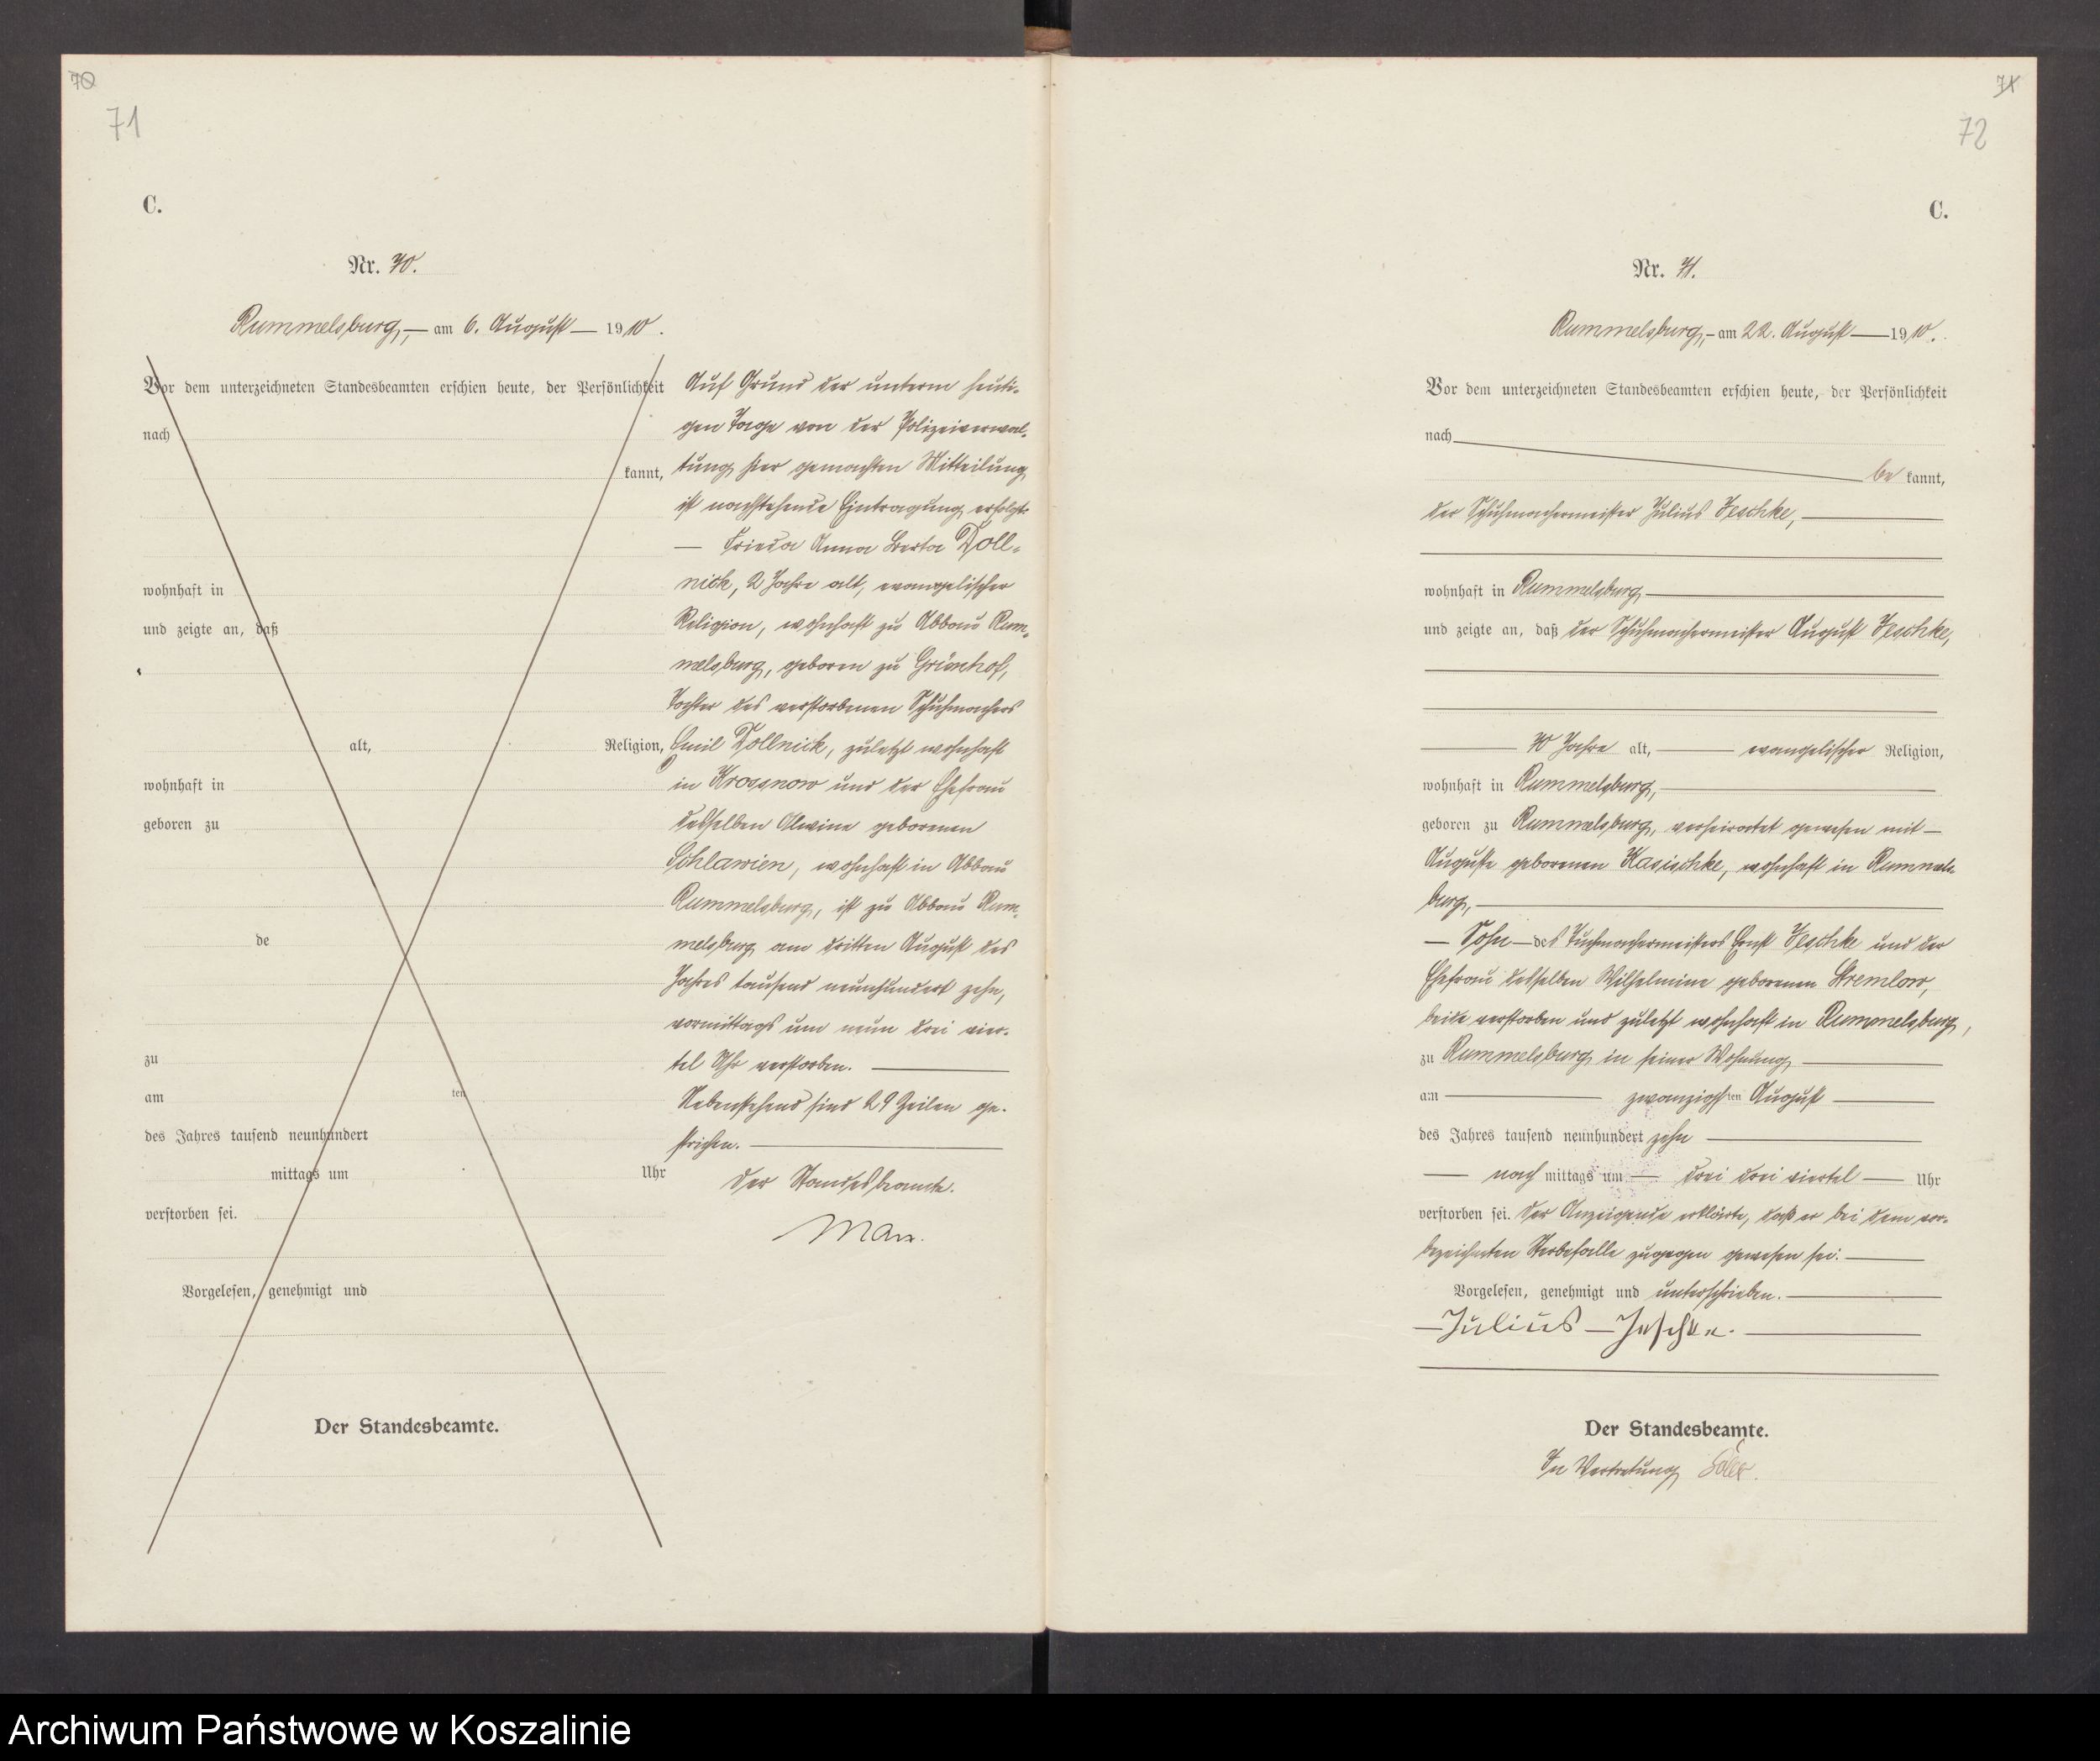 70
71
C.
Nr. 70.
Rummelsburg, — am 6. August — 1910.
Vor dem unterzeichneten Standesbeamten erschien heute, der Persönlichkeit
nach
kannt,
wohnhaft in
und zeigte an, daß
alt, Religion,
wohnhaft in
geboren zu
de
zu
am ten
des Jahres tausend neunhundert
mittags um Uhr
verstorben sei.
Vorgelesen, genehmigt und
Der Standesbeamte.
Auf Grund der unterm heuti-
gen Tage von der Polizeiverwal-
tung hier gemachten Mitteilung
ist nachstehende Eintragung erfolgt:
— Frieda Anna Berta Doll-
nick, 2 Jahre alt, evangelischer
Religion, wohnhaft zu Abbau Rum-
melsburg, geboren zu Grünhof,
Tochter des verstorbenen Schuhmachers
Emil Dollnick, zuletzt wohnhaft
in Krossnow und der Ehefrau
desselben Alwine geborenen
Schlawien, wohnhaft in Abbau
Rummelsburg, ist zu Abbau Rum-
melsburg am dritten August des
Jahres tausend neunhundert zehn,
vormittags um neun drei vier-
tel Uhr verstorben. —
Nebenstehend sind 29 Zeilen ge-
strichen. —
Der Standesbeamte.
71
72
C.
Nr. 71.
Rummelsburg, — am 22. August — 1910.
Vor dem unterzeichneten Standesbeamten erschien heute, der Persönlichkeit
nach — be kannt,
der Schuhmachermeister Julius Jeschke, —
wohnhaft in Rummelsburg —
und zeigte an, daß der Schuhmachermeister August Jeschke,
— 70 Jahre alt, — evangelischer Religion,
wohnhaft in Rummelsburg, —
geboren zu Rummelsburg, verheiratet gewesen mit —
Auguste geborenen Kasischke, wohnhaft in Rummels-
burg, —
— Sohn — des Tuchmachermeisters Ernst Jeschke und der
Ehefrau desselben Wilhelmine geborenen Stremlow,
beide verstorben und zuletzt wohnhaft in Rummelsburg,
zu Rummelsburg in seiner Wohnung —
am — zwanzigsten August —
des Jahres tausend neunhundert zehn —
— nach mittags um — drei drei viertel — Uhr
verstorben sei. Der Anzeigende erklärte, daß er bei dem vor-
bezeichneten Sterbefalle zugegen gewesen sei. —
Vorgelesen, genehmigt und unterschrieben. —
— Julius — Jeschke. —
Der Standesbeamte.
In Vertretung
Archiwum Państwowe w Koszalinie